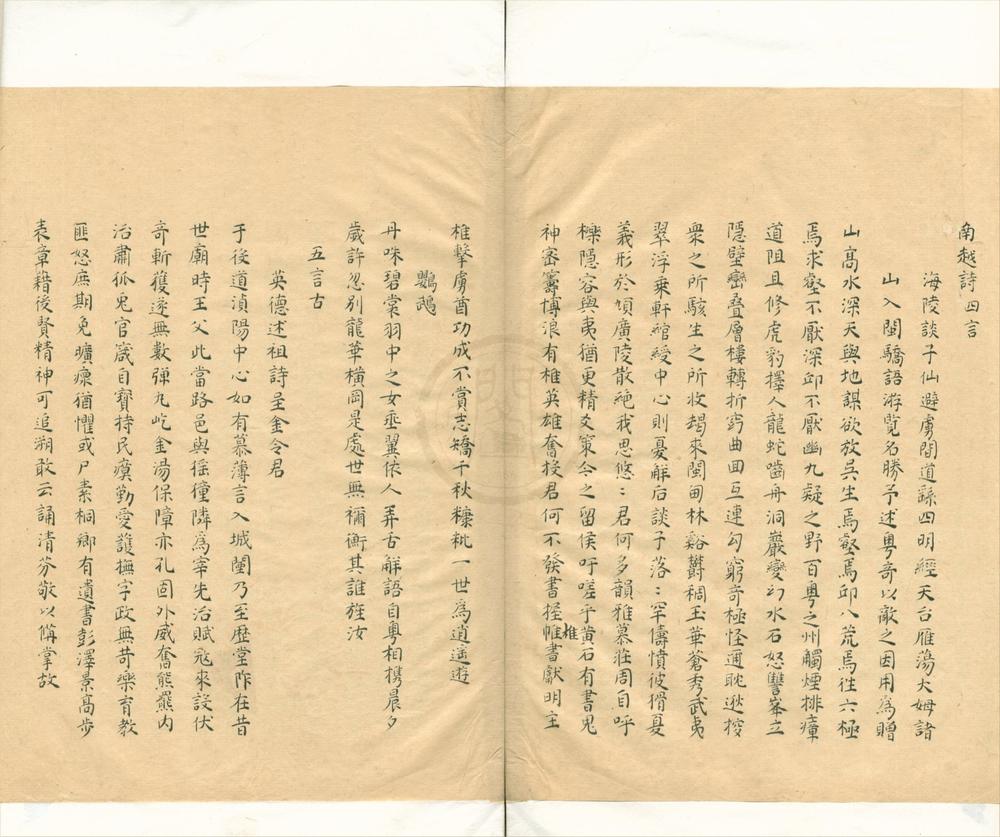 南越詩四言
海陵談子仙避虜間道繇四明經天台雁蕩大姆諸
山入閩驕語游覽名勝予述粵奇以敵之因用為贈
山高水深天與地謀欲放吳生焉壑焉邱八荒焉徃六極
焉求壑不厭深邱不厭幽九疑之野百粵之州觸煙排瘴
道阻且修虎豹擇人龍蛇嚙舟洞巖變幻水石怒讐峯立
隱壁巒叠層樓轉折窍曲回互連勾窮奇極怪邇眺遐搜
衆之所駭生之所收朅來閩甸林谿欝稠玉華蒼秀武夷
翠浮乘軒綰綬中心則憂解后談子落：罕儔憤彼猾夏
義形於頄廣陵散絶我思悠：君何多韻雅慕莊周自呼
櫟隱容與夷猶更精爻策今之留侯吁嗟乎黄石有書鬼
神密籌博浪有椎英雄奮投君何不發書握帷書獻明主
椎
椎擊虜酋功成不賞志矯千秋糠粃一世為逍遥遊
鸚鵡
丹咮碧裳羽中之女乖翼依人弄舌解語自粵相携晨夕
歲許忽别龍華横岡是處世無禰衡其誰旌汝
五言古
英德述祖詩呈金令君
于後道湞陽中心如有慕薄言入城闉乃至歴堂阼在昔
世廟時王父此當路邑與徭獞隣為宰先治賦寇來設伏
奇斬獲遂無數彈丸屹金湯保障亦孔固外威奮熊羆内
治肅狐兎官箴自寶持民瘼勤愛護撫字政無苛樂育教
匪怒庶期免曠瘝猶懼或尸素桐鄉有遺書彭澤景高步
表章藉後賢精神可追溯敢云誦清芬敬以偹掌故